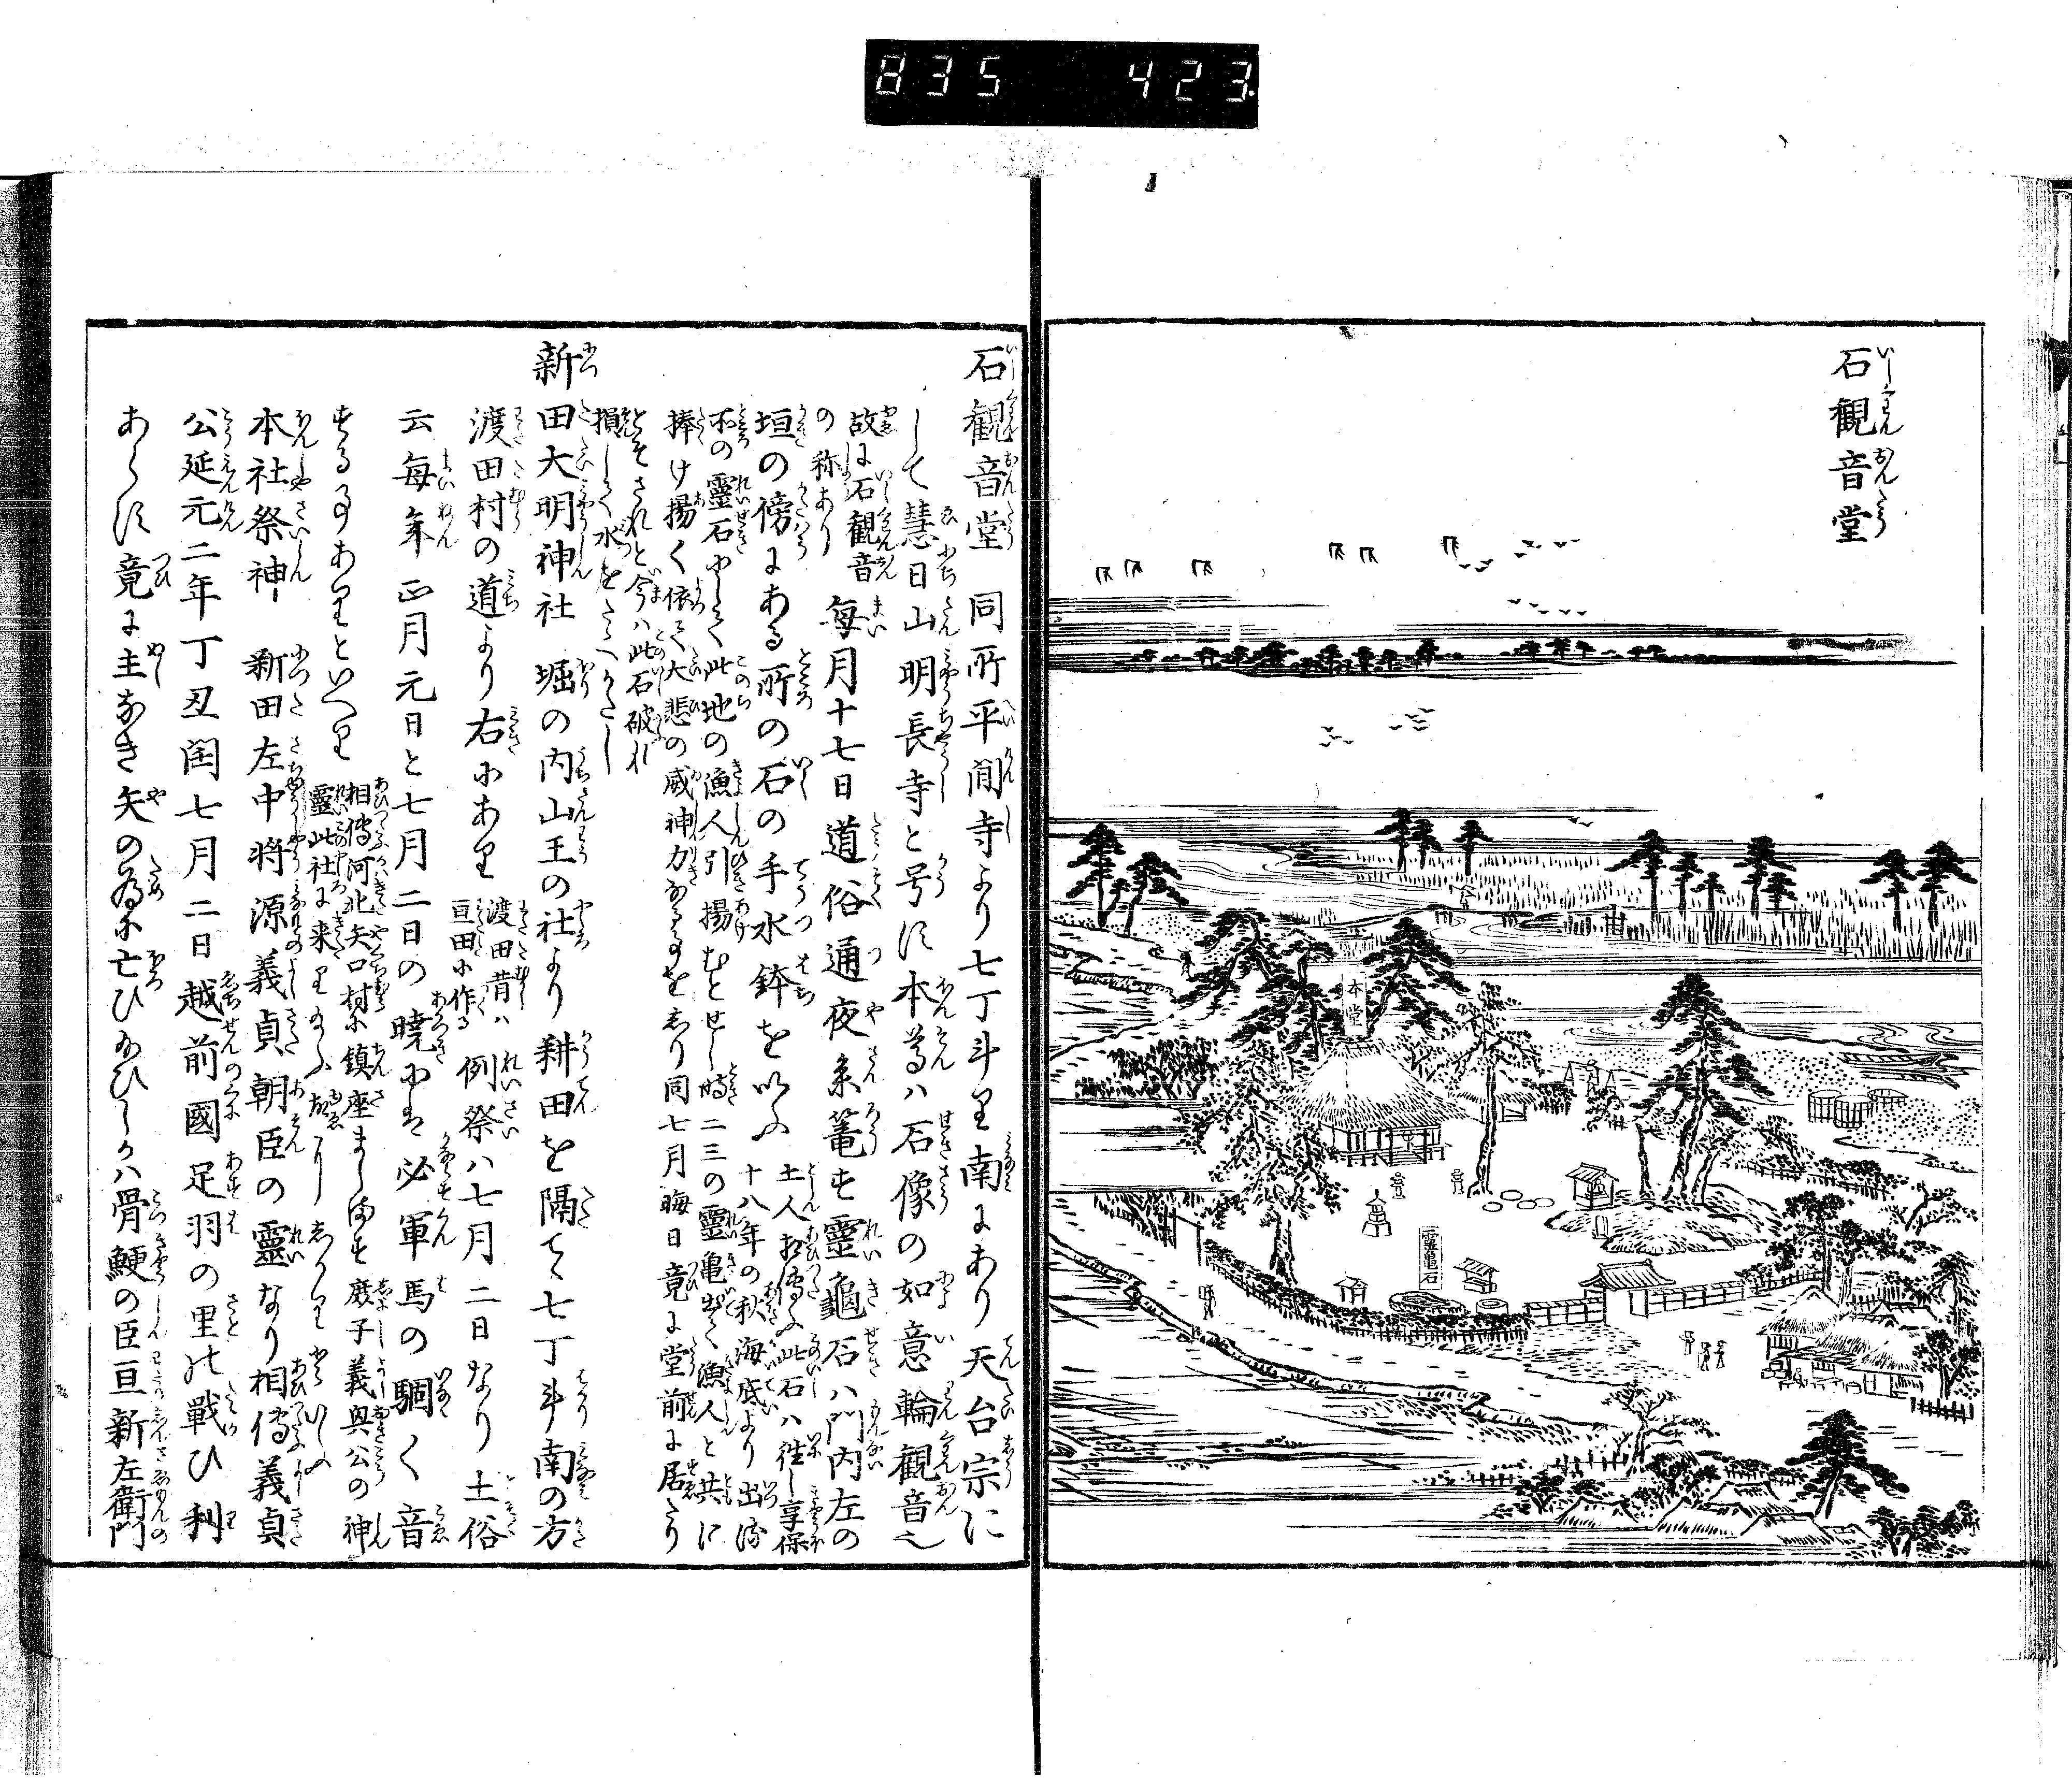 835 423
石観音堂
本堂
霊亀石
石観音堂 同所平間寺より七丁斗り南にあり天台宗に
して慧日山明長寺と号す本尊ハ石像の如意輪観音也
故に石観音
の称あり
毎月十七日道俗通夜参篭す霊龜石ハ門内左の
垣の傍にある所の石の手水鉢を以ふ
土人相傳ふ此石ハ往し享保
十八年の秋海底より出現
不の靈石にして此地の漁人引揚むとせし時二三の靈亀出て漁人と共に
捧け揚く依て大悲の威神力なる事をしり同七月晦日竟に堂前に居たり
とそされと今ハ此石破れ
損して水をたゝへかたし
新田大明神社 堀の内山王の社より耕田を隔てゝ七丁斗南の方
渡田村の道より右にあり
渡田昔ハ
亘田に作る
例祭ハ七月二日なり土俗
云每年正月元日と七月二日の暁にハ必軍馬の駰く音
する事ありといへり
相傳河北矢口村に鎮座まします廢子義興公の神
靈此社に来り
本社祭神 新田左中将源義貞朝臣の靈なり相傳義貞
公延元二年丁丑閏七月二日越前國足羽の里の戰ひ利
あらす竟に主なき矢の為に亡ひ給ひしかハ骨鯁の臣亘新左衛門